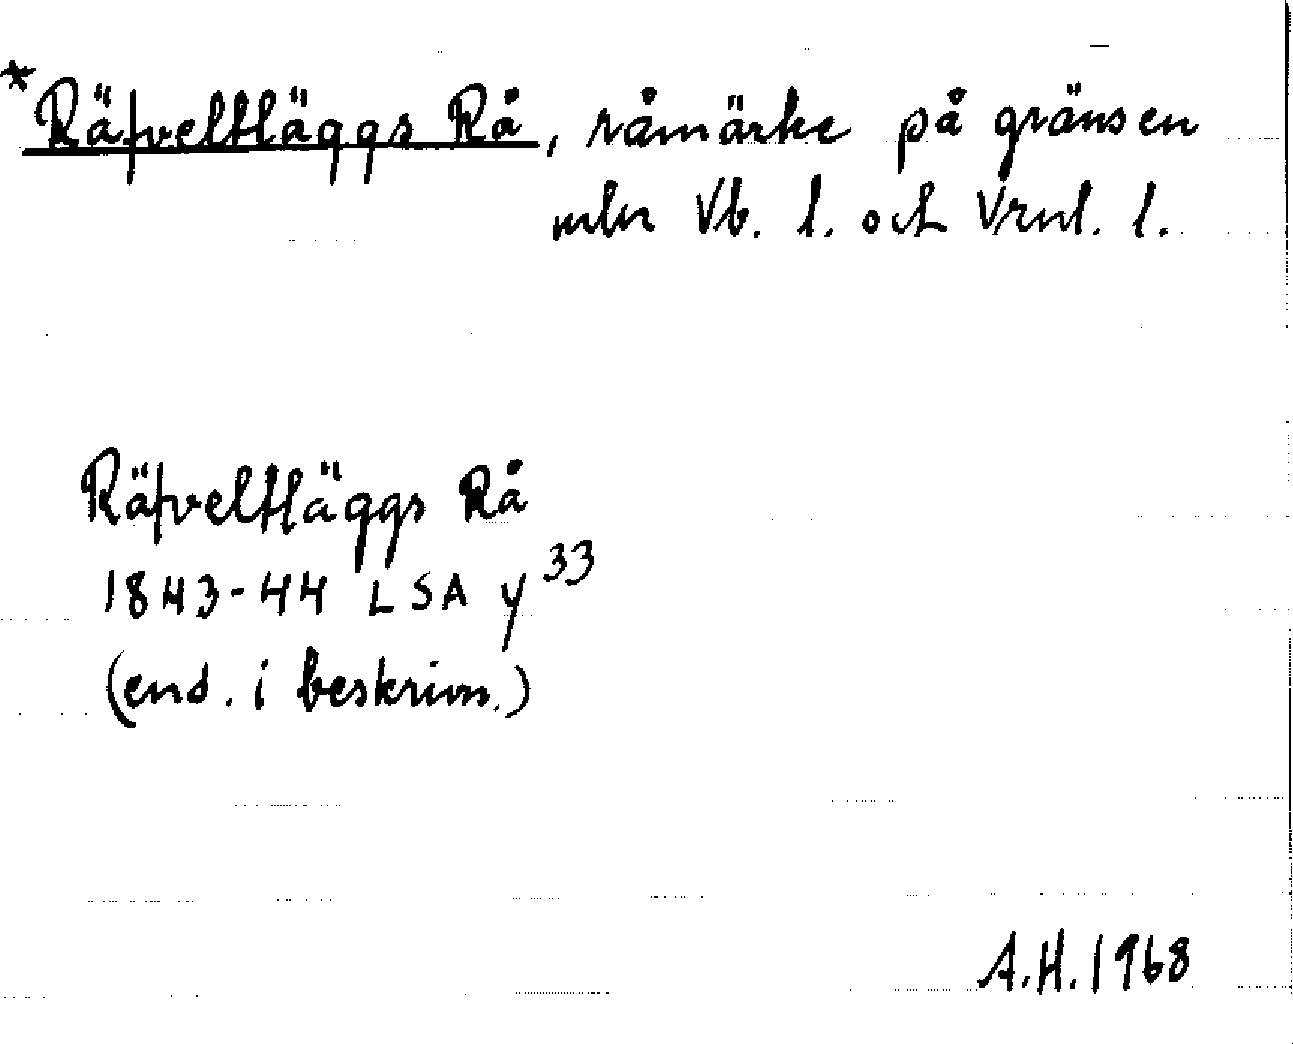 *Räfveltläggs Rå, råmärke på gränsen
mln Vb. l. och Vrml. l.
Räfveltläggs Rå
1843-44 LSA y33
(end. i beskrivn.)
A.H. 1968